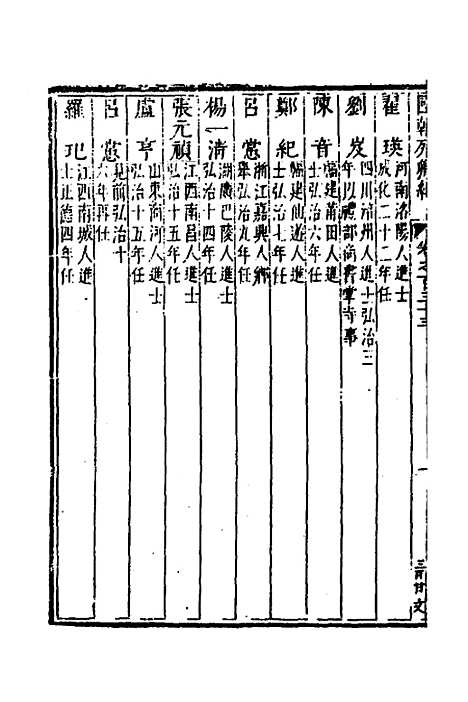 國朝列卿紀 卷之一百三十三
翟瑛 河南洛陽人進士
成化二十二年任
劉岌 四川涪州人進士弘治三
年以禮部尚書掌寺事
陳音 福建莆田人進
士弘治六年任
鄭紀 福建仙遊人進
士弘治七年任
呂𢡟 浙江嘉興人鄉
舉弘治九年任
楊一清 湖廣巴陵人進士
弘治十四年任
張元禎 江西南昌人進士
弘治十五年任
盧亨 山東海河人進士
弘治十五年任
呂𢡟 見前弘治十
六年再任
羅玘 江西南城人進
士正德四年任